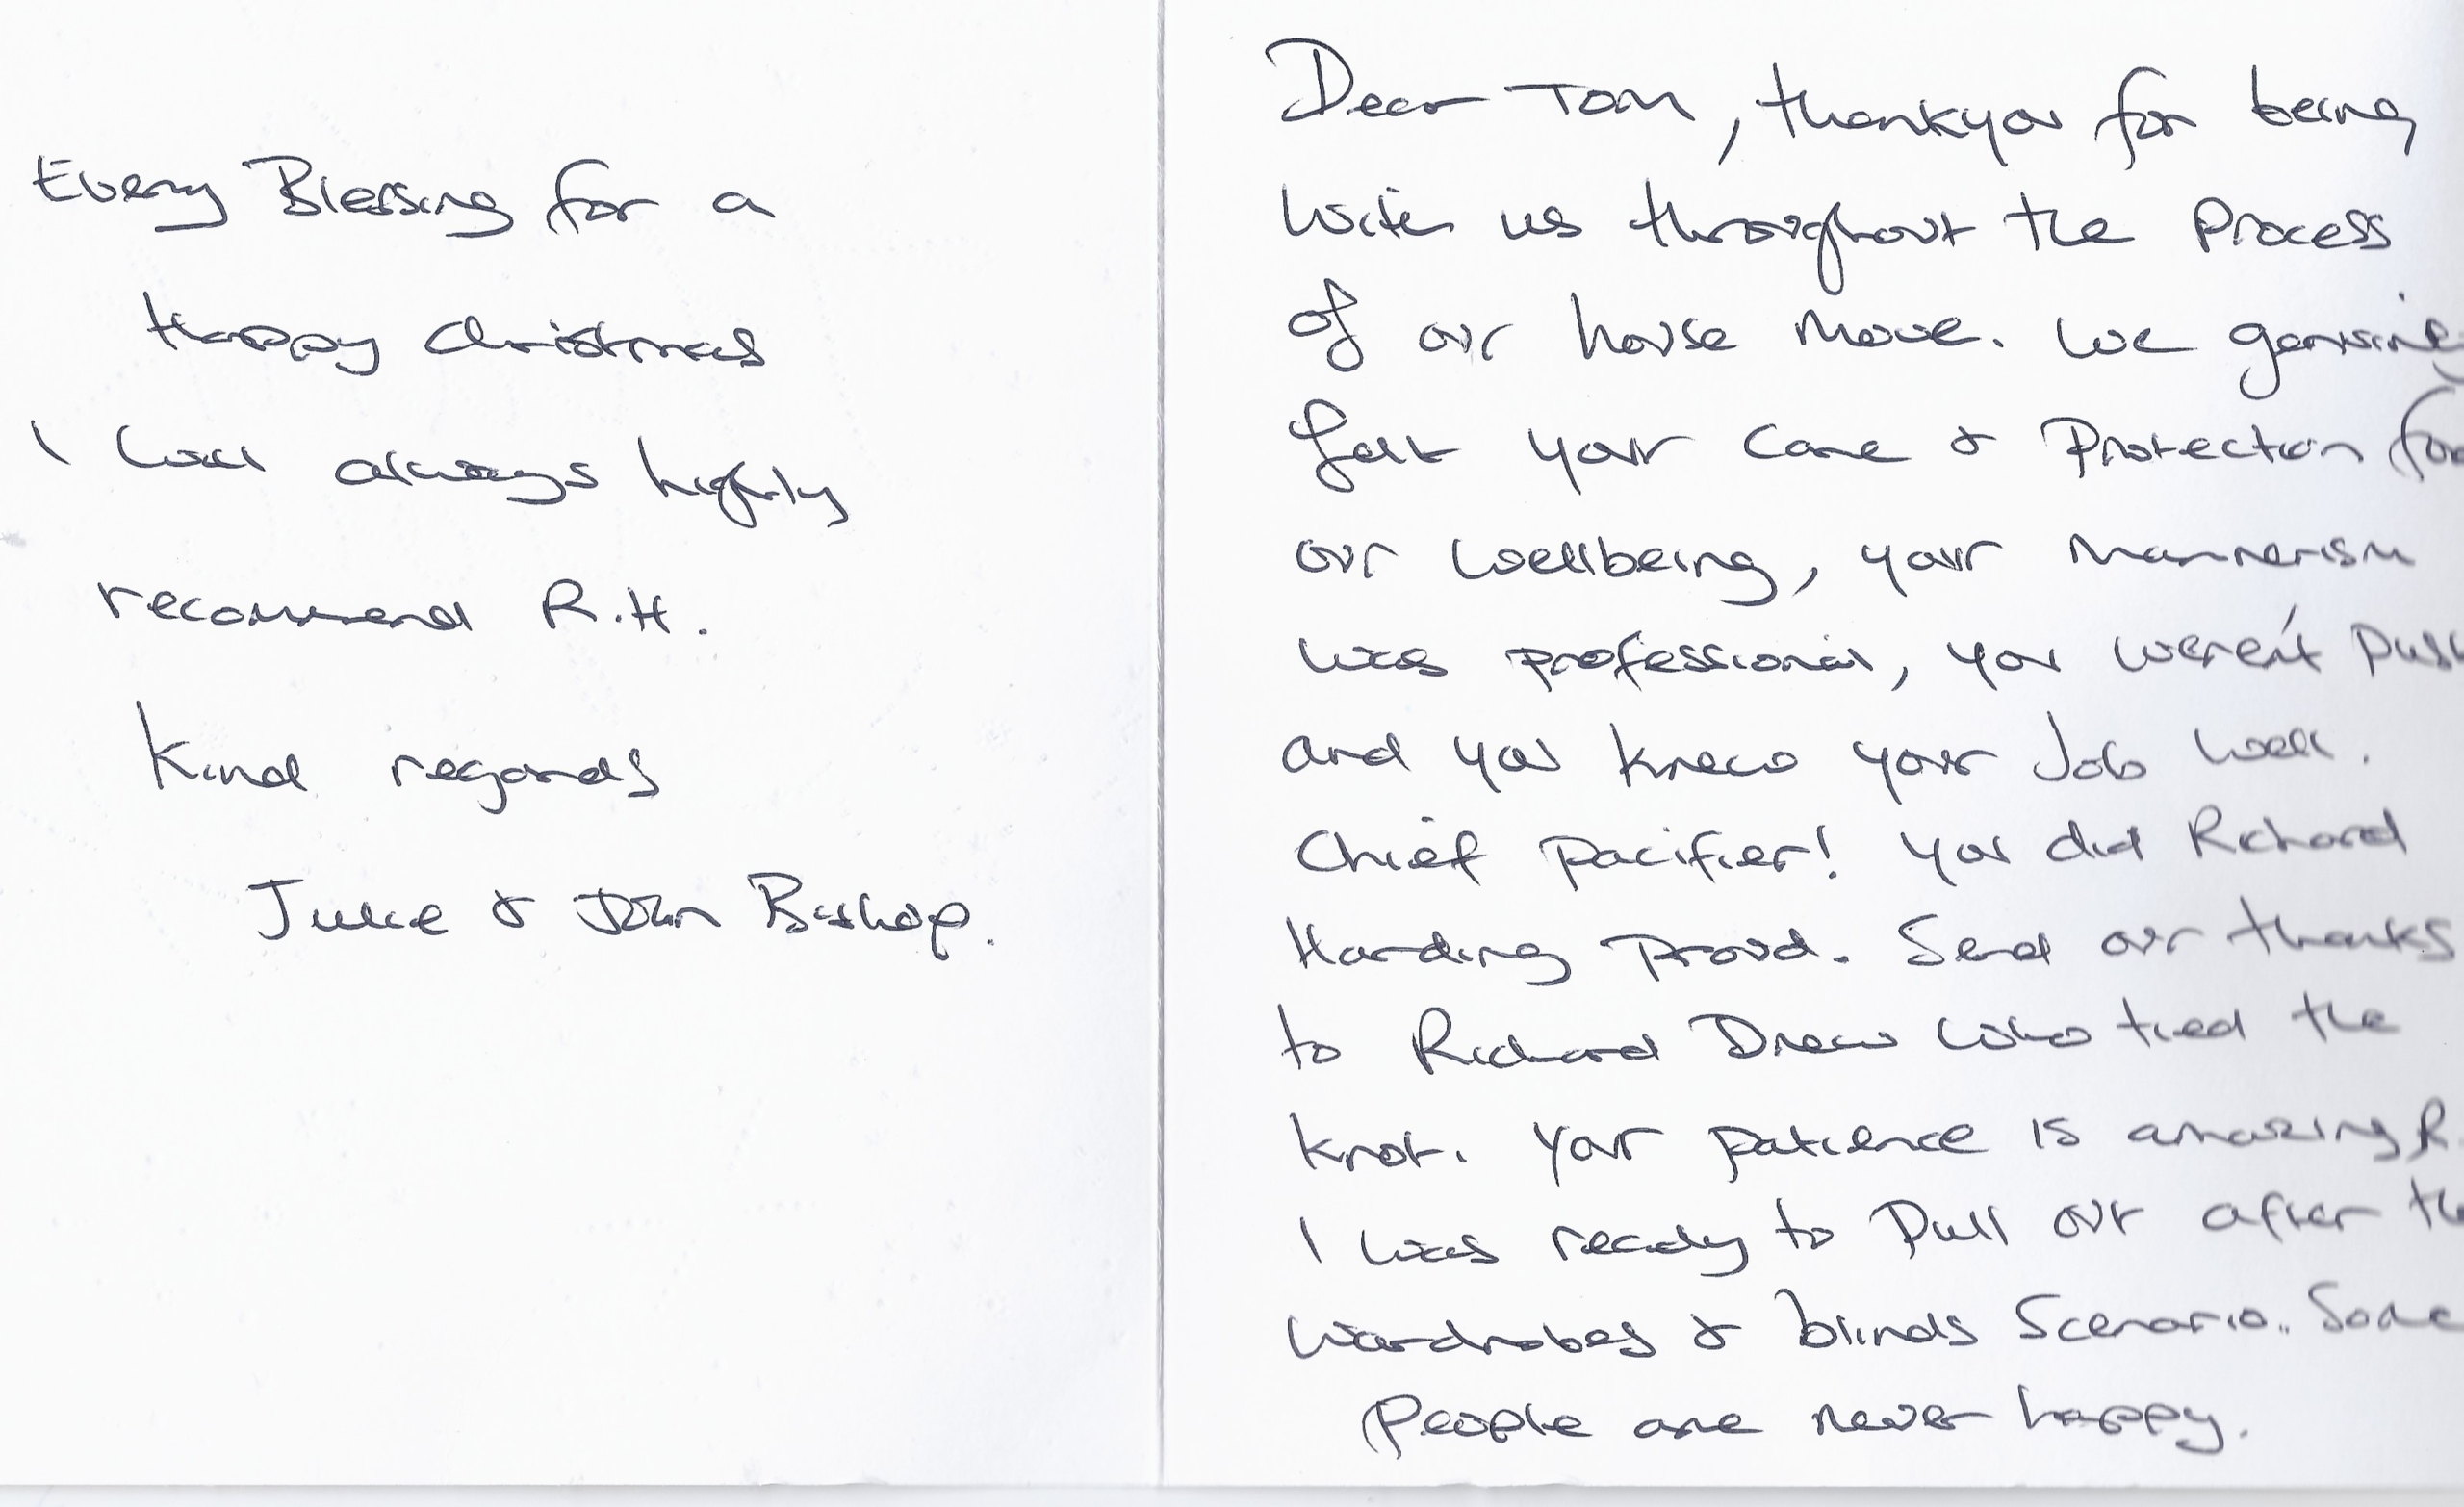 Every Blessing for a
Happy Christmas
I will always highly
recommend R.H.
Kind regards
Julie & John Bishop.
Dear Tom, thankyou for being
with us throughout the process
of our house move. We genuinely
felt your care & Protection for
our wellbeing, your mannerism
was professional, you weren't push
and you knew your Job well.
Chief pacifier! You did Richard
Harding Proud. Send our thanks
to Richard Drew who tied the
knot. Your patience is amazing R.
I was ready to Pull out after the
wardrobes & blinds Scenario.. Some
People are never happy.